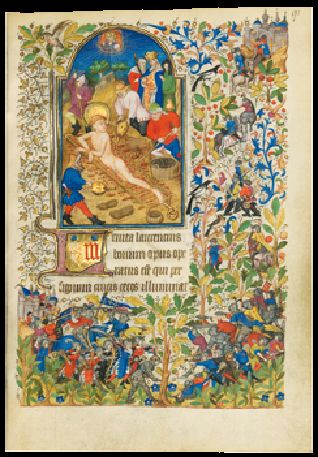 Leuita laurencius
bonum opus ope
ratus est qui per
signum crucis cecos illuminat